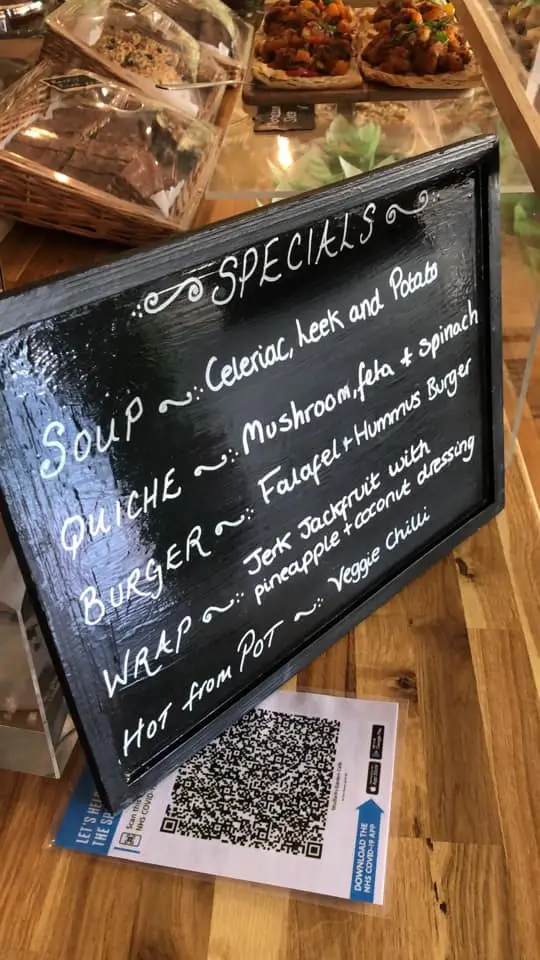 SPECIALS
SOUP ~ Celeriac, Leek and Potato
QUICHE ~ Mushroom, feta + spinach
BURGER ~ Falafel + Hummus Burger
WRAP ~ Jerk Jackfruit with
pineapple + coconut dressing
HOT from POT ~ Veggie Chilli
LET'S HEL
THE SP
Scan this
NHS COVID
DOWNLOAD THE
NHS COVID-19 APP